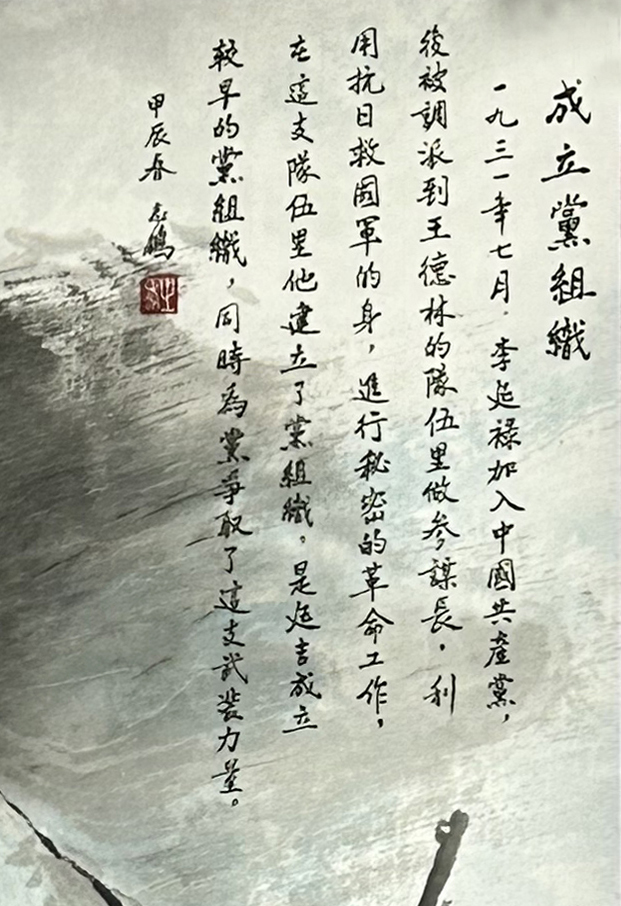 成立黨組織
一九三一年七月·李延祿加入中國共產黨，
後被調派到王德林的隊伍里做參謀長，利
用抗日救國軍的身，進行秘密的革命工作，
在這支隊伍里他建立了黨組織。是延吉成立
較早的黨組織，同時為黨爭取了這支武裝力量。
甲辰春 志鵬